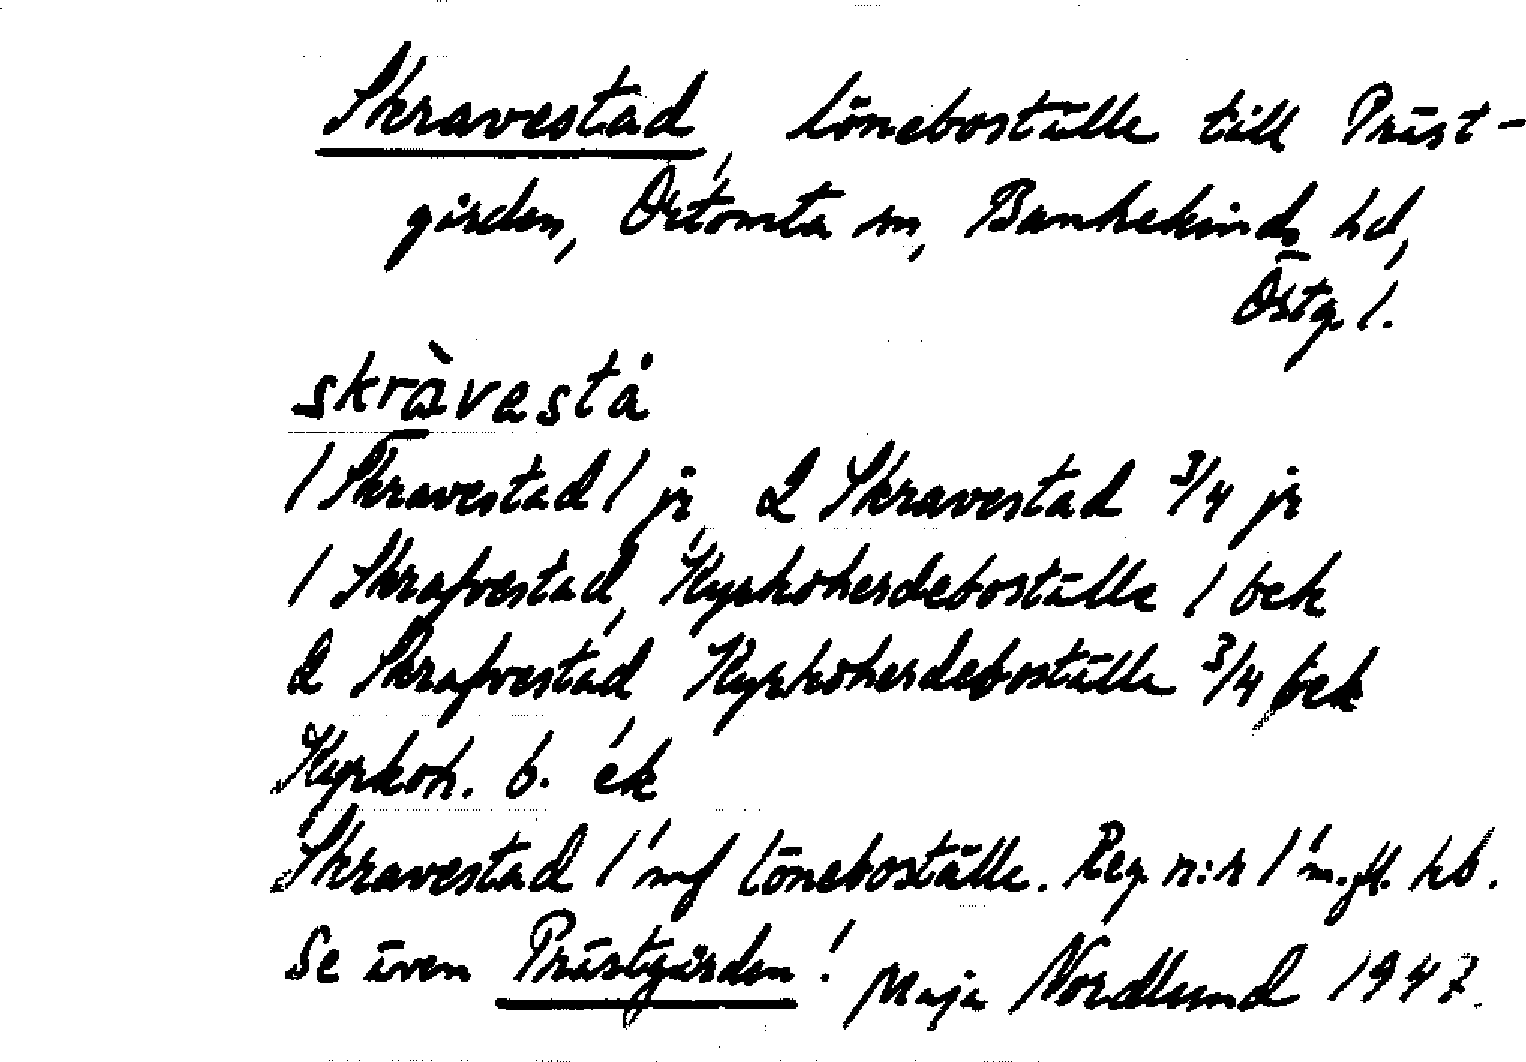 Skravestad, löneboställe till Präst-
gården, Örtomta sn, Bankekinds hd,
Östg. l.
skràvestå
1 Skravestad 1 jr, 2 Skravestad 3/4 jr
1 Skrafvestad, Kyrkoherdeboställe 1 bek
2 Skrafvestad, Kyrkoherdeboställe 3/4 bek
Kyrkoh. b. ék
Skravestad 1 mf löneboställe. Reg. n:r 1 m.fl. hb.
Se även Prästgården! Maja Nordlund 1947.